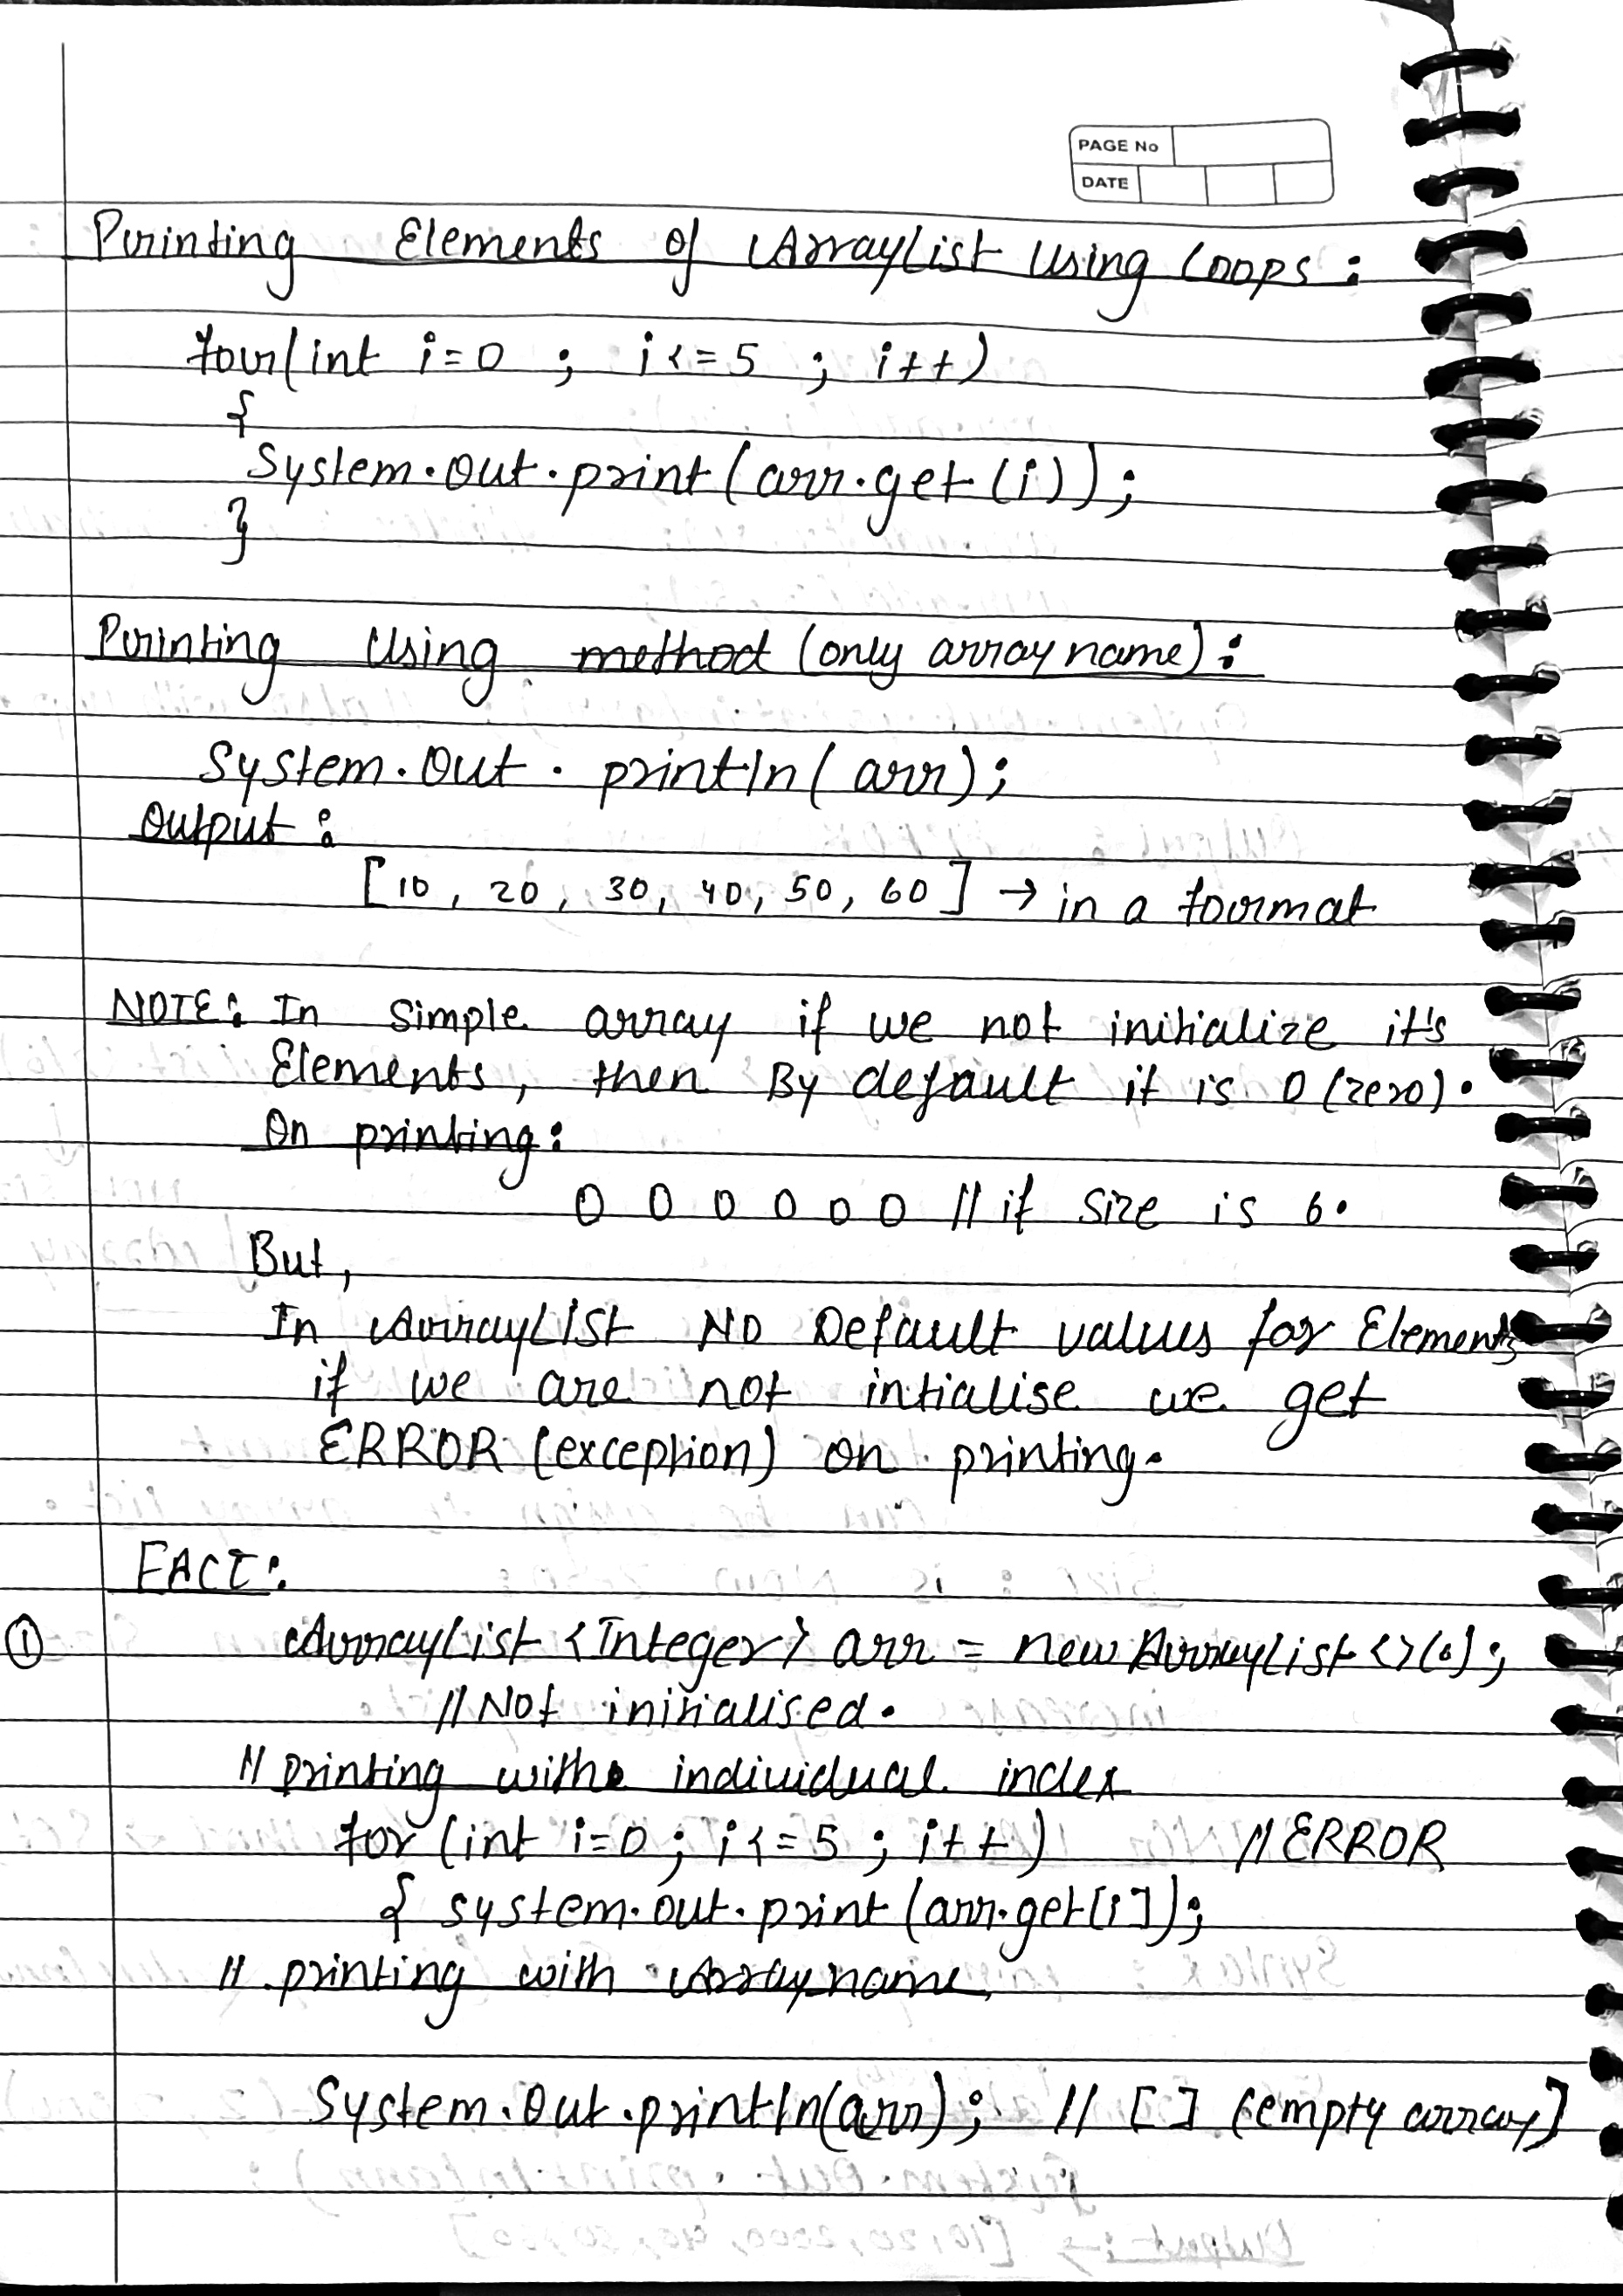 PAGE No
DATE
Printing Elements of ArrayList Using Loops :
for(int i=0 ; i<=5 ; i++)
{
System.out.print(arr.get(i));
}
Printing Using method (only array name) :
System.Out.println(arr);
Output :
[10, 20, 30, 40, 50, 60] → in a format
NOTE: In Simple array if we not initialize it's
Elements, then By default it is 0 (zero).
On printing:
0 0 0 0 0 0 // if size is 6.
But,
In ArrayList NO Default values for Elements
if we are not intialise we get
ERROR (exception) on printing.
FACT:
① ArrayList <Integer> arr = new ArrayList<>(6);
// Not initialised.
// printing with individual index
for (int i=0 ; i<=5 ; i++) // ERROR
{ system.out.print(arr.get(i]);
// printing with Array name
System.Out.println(arr); // [ ] (empty array]